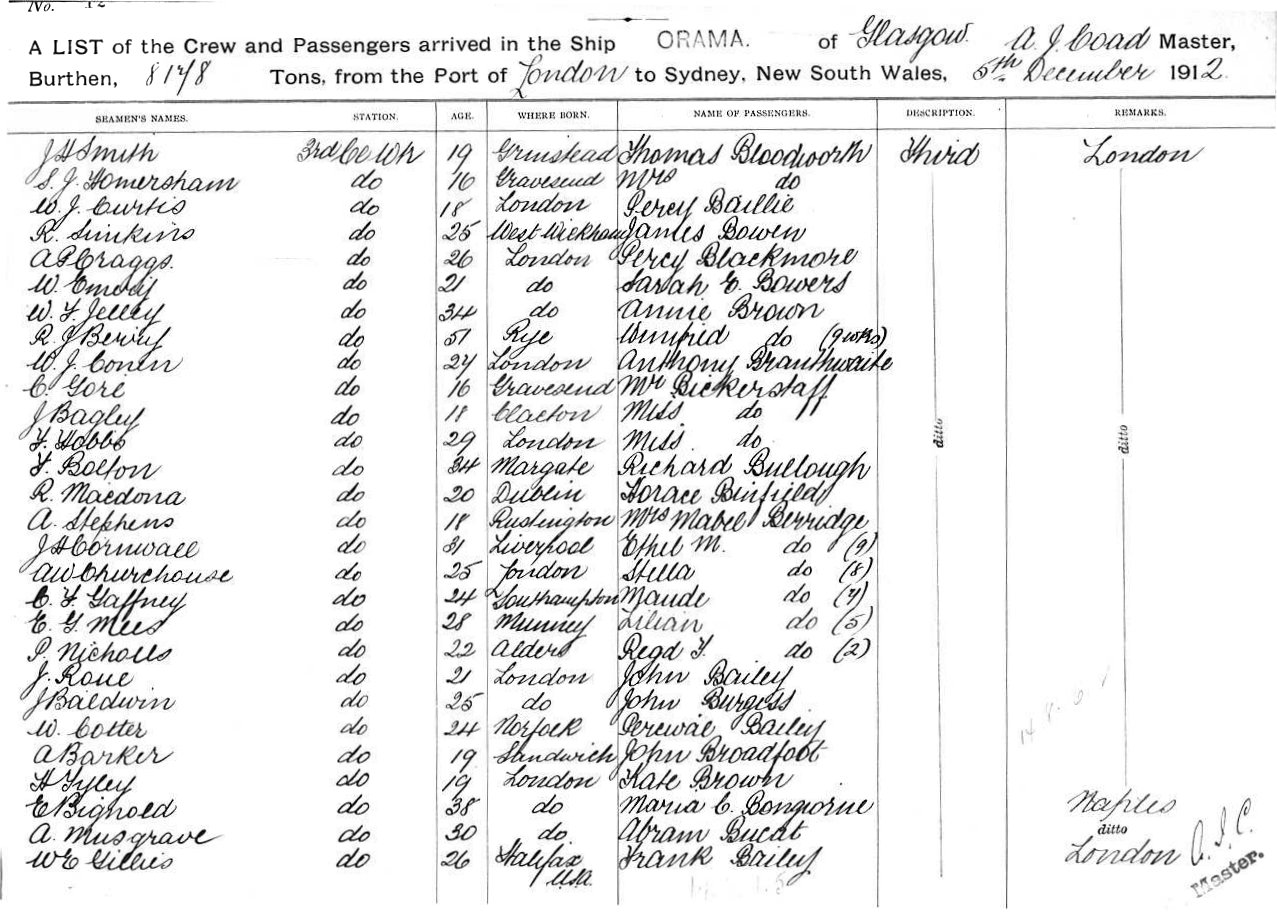 No. 12
A LIST of the Crew and Passengers arrived in the Ship ORAMA. of Glasgow. A. J. Coad Master,
Burthen, 8178 Tons, from the Port of London to Sydney, New South Wales, 5th December 1912.
SEAMEN'S NAMES. STATION. AGE. WHERE BORN. NAME OF PASSENGERS. DESCRIPTION. REMARKS.
J H Smith 3rd Cl Wtr 19 Grinstead Thomas Bloodworth Third London
S. J. Homersham do 16 Gravesend Mrs do
W. J. Curtis do 18 London Percy Baillie
R. Simkins do 25 West Wickham James Bowen
A P Craggs. do 26 London Percy Blackmore
W. Emery do 21 do Sarah E. Bowers
W. F. Jelley do 34 do Annie Brown
R. J Berry do 51 Rye Winifred do (9 wks)
W. J. Conen do 24 London Anthony Branthwaite
C. Gore do 16 Gravesend Mr Bickerstaff
J Bagley do 18 Clacton Miss do
F. Hobbs do 29 London Miss do
F. Bolton do 34 Margate Richard Bullough
R. Macdona do 20 Dublin Horace Binfield
A. Stephens do 18 Rustington Mrs Mabel Berridge
J H Cornwall do 31 Liverpool Ethel M. do (9)
A W Churchouse do 25 London Stella do (8)
C. F. Gaffney do 24 Southampton Maude do (7)
E. G. Mees do 28 Lilian do (5)
P. Nicholls do 22 Alders Regd F. do (2)
J. Roue do 21 London John Bailey
J Baldwin do 25 do John Burgess
W. Cotter do 24 Norfolk Percival Bailey
A Barker do 19 Sandwich John Broadfoot
H Tyley do 19 London Kate Brown
E Bignold do 38 do Maria C. Bongiorne Naples
A. Musgrave do 30 do Abram Bucat ditto
W E Gillies do 26 Halifax USA. Frank Bailey London
ditto
ditto
A. J. C.
Master.